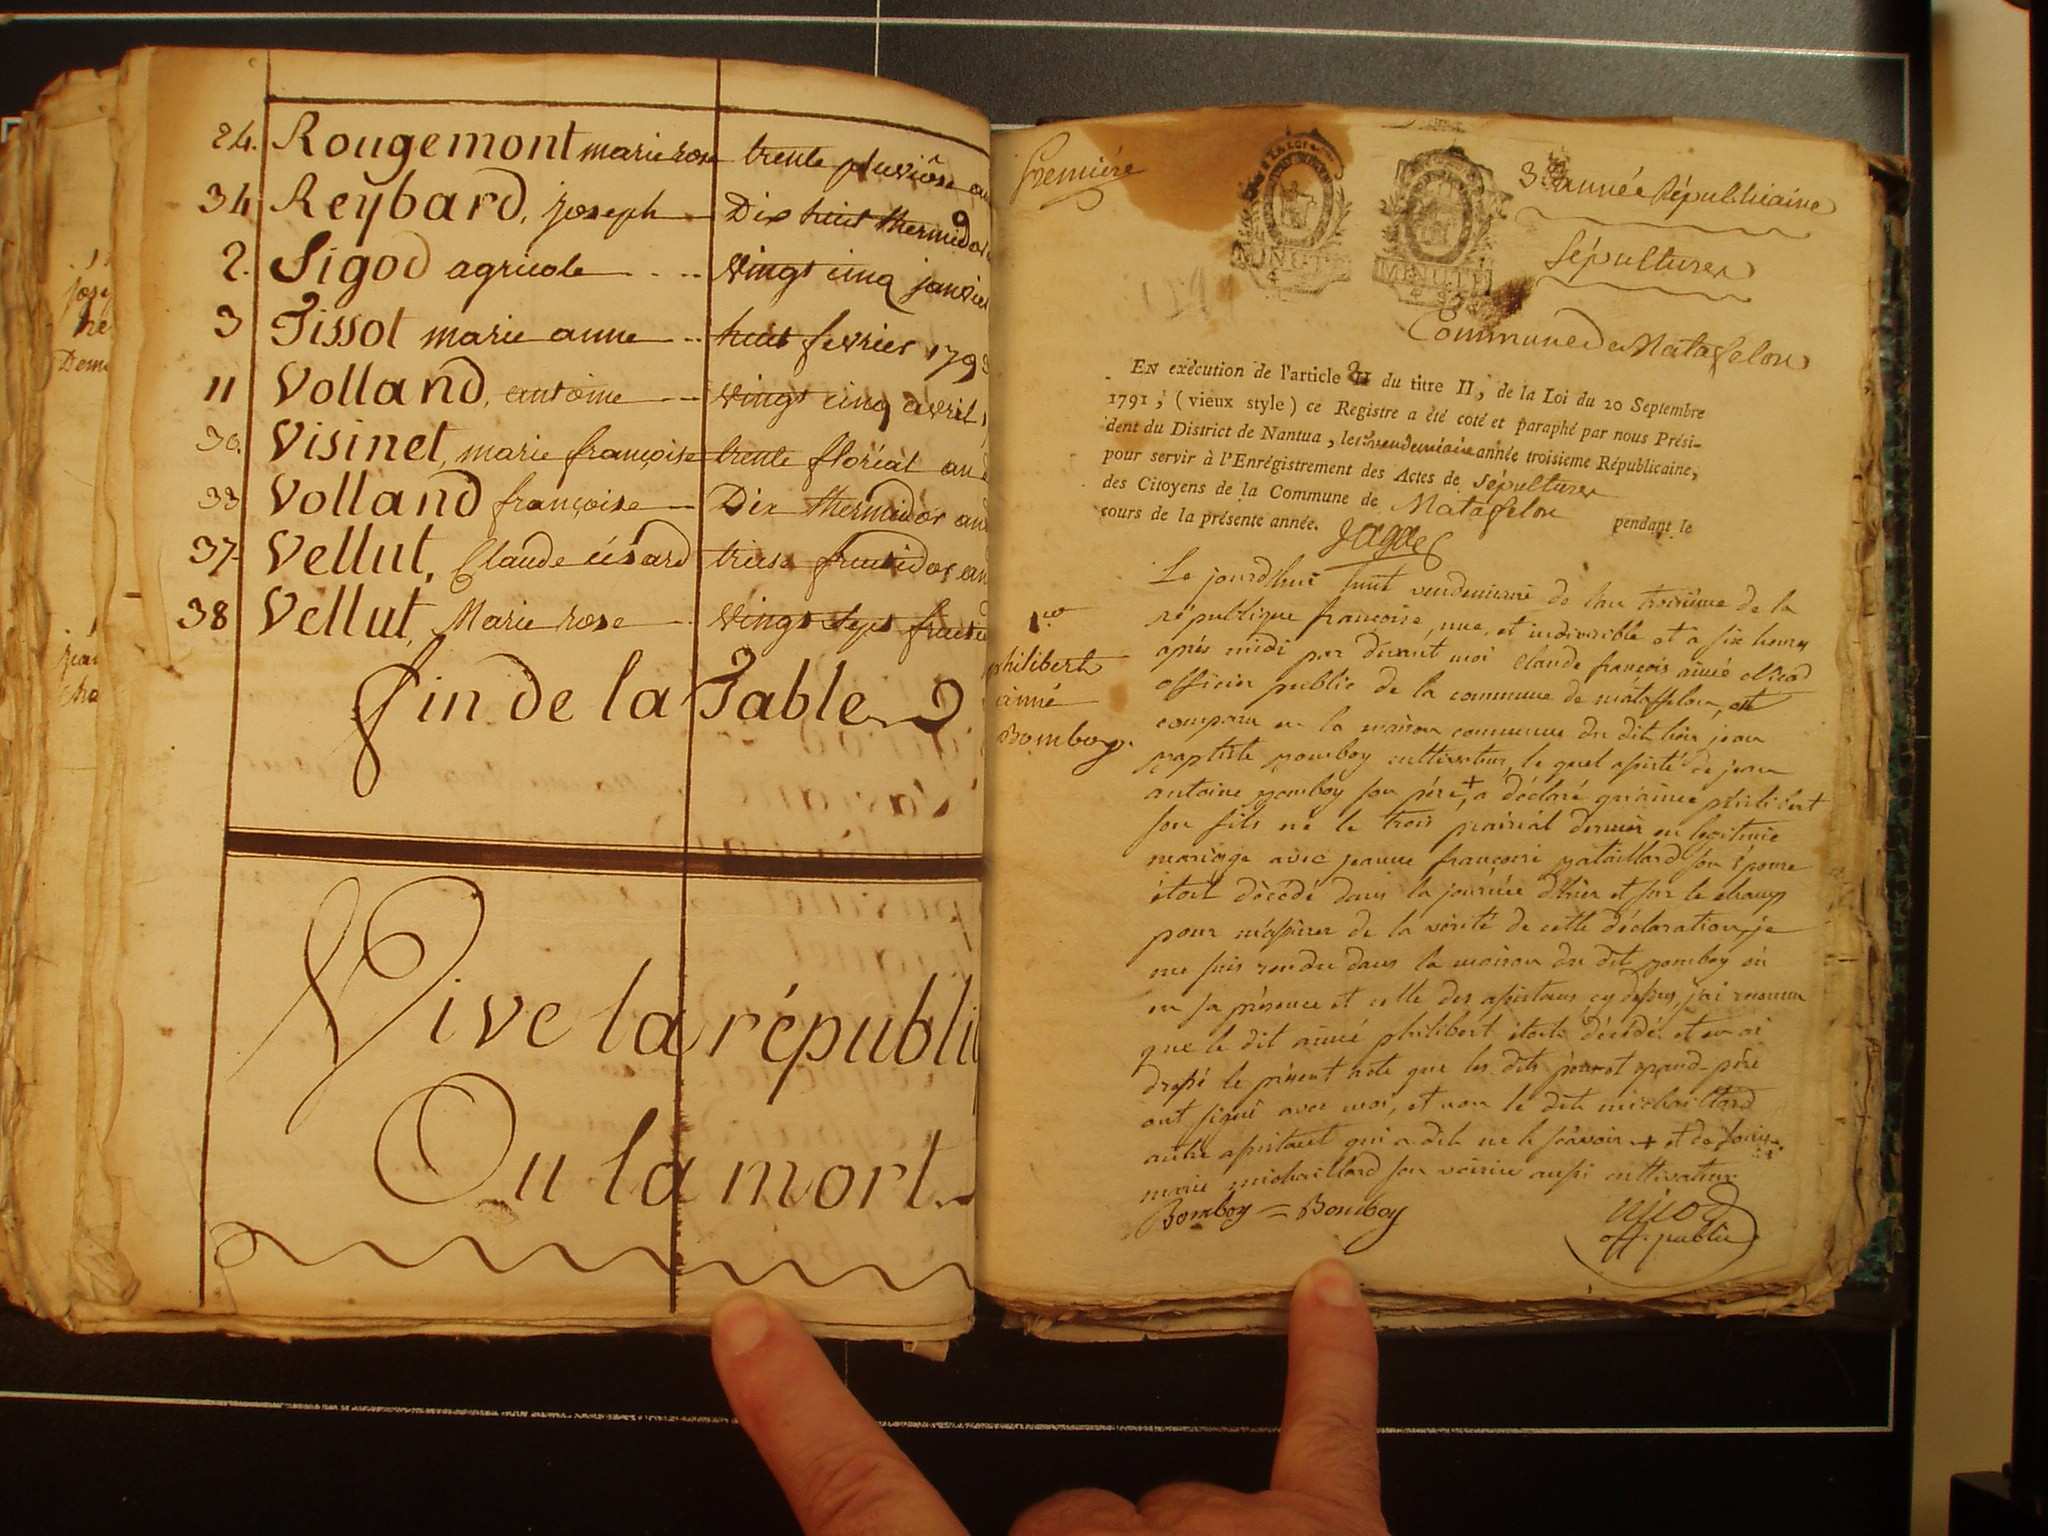 24. Rougemont marie rose trente pluviôse an
34 Reybard, joseph Dix huit thermidor
2. Sigod agricole vingt cinq janvier
3 Tissot marie anne huit fevrier 1793
11 Volland, antoine vingt cinq avril
30. Visinet, marie françoise trente floréal an
33 Volland françoise Dix thermidor an
37 Vellut, Claude césard treise fructidor an
38 Vellut, Marie rose vingt sept fructi
fin de la Table
Vive la républi
Ou la mort.
Première
3e année Républicaine
Sépultures
Commune de Matafelon
MINUTE
MINUTE
EN exécution de l'article II du titre II, de la Loi du 20 Septembre
1791, (vieux style) ce Registre a été coté et paraphé par nous Prési-
dent du District de Nantua, le vendemiaire année troisieme Républicaine,
pour servir à l'Enrégistrement des Actes de Sépultures
des Citoyens de la Commune de Matafelon pendant le
cours de la présente année.
1er
philibert
aimé
Bomboy.
Le jourd'hui huit vendemiaire de l'an troisième de la
république françoise, une, et indivisible et à six heures
après midi par devant moi Claude françois aimé Nicod
officier public de la commune de matafelon, est
comparu en la maison commune du dit lieu jean
baptiste bomboy cultivateur, le quel assisté de jean
antoine bomboy son père, + a déclaré qu'aimé philibert
son fils né le trois prairial dernier en legitime
mariage avec jeanne françoise pataillard son épouse
étoit décédé dans la journée d'hier et sur le champ
pour m'assurer de la vérité de cette déclaration, je
me suis rendu dans la maison du dit bomboy où
en sa présence et celle des assistans cy dessus, j'ai reconnu
que le dit aimé philibert étoit décédé et en ai
dressé le présent acte que les dits père et grand-père
ont signé avec moi, et non le dit michaillard
autre assistant qui a dit ne le sçavoir + et de
marie michaillard son voisin aussi cultivateur
Bomboy = Bomboy
Nicod
off. public